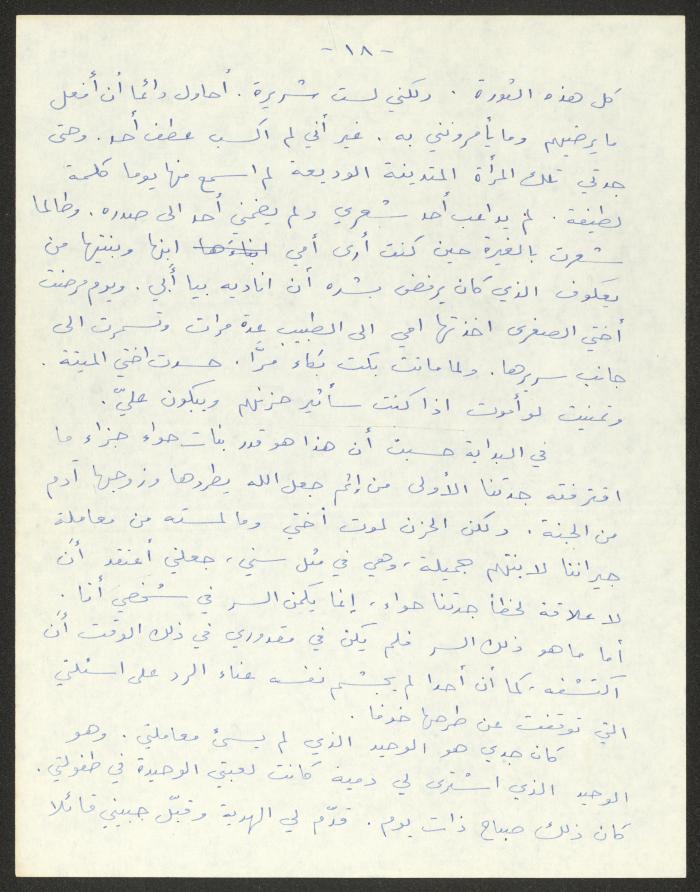 - ١٨ -
كل هذه الثورة . ولكني لست شريرة . أحاول دائما أن أفعل
ما يرضيهم وما يأمرونني به . غير أني لم اكسب عطف أحد . وحتى
جدتي تلك المرأة المتدينة الوديعة لم اسمع منها يوما كلمة
لطيفة . لم يداعب أحد شعري ولم يضمني أحد الى صدره . وطالما
شعرت بالغيرة حين كنت أرى أمي ابناءها ابنها وبنتيها من
يعكوف الذي كان يرفض بشده أن اناديه بيا أبي . ويوم مرضت
أختي الصغرى اخذتها امي الى الطبيب عدة مرات وتسمرت الى
جانب سريرها . ولما ماتت بكت بكاء مرّا . حسدت اختي الميتة .
وتمنيت لو أموت اذا كنت سأثير حزنهم ويبكون عليّ .
في البداية حسبت أن هذا هو قدر بنات حواء جزاء ما
اقترفته جدتنا الأولى من إثم جعل الله يطردها وزوجها آدم
من الجنة . ولكن الحزن لموت أختي وما لمسته من معاملة
جيراننا لابنتهم جميلة ، وهي في مثل سني ، جعلني أعتقد أن
لا علاقة لخطأ جدتنا حواء ، إنما يكمن السر في شخصي أنا .
أما ما هو ذلك السر فلم يكن في مقدوري في ذلك الوقت أن
اكتشفه ، كما أن أحدا لم يجشم نفسه عناء الرد على اسئلتي
التي توقفت عن طرحها خوفا .
كان جدي هو الوحيد الذي لم يسئ معاملتي . وهو
الوحيد الذي اشترى لي دمية كانت لعبتي الوحيدة في طفولتي .
كان ذلك صباح ذات يوم . قدّم لي الهدية وقبّل جبيني قائلا